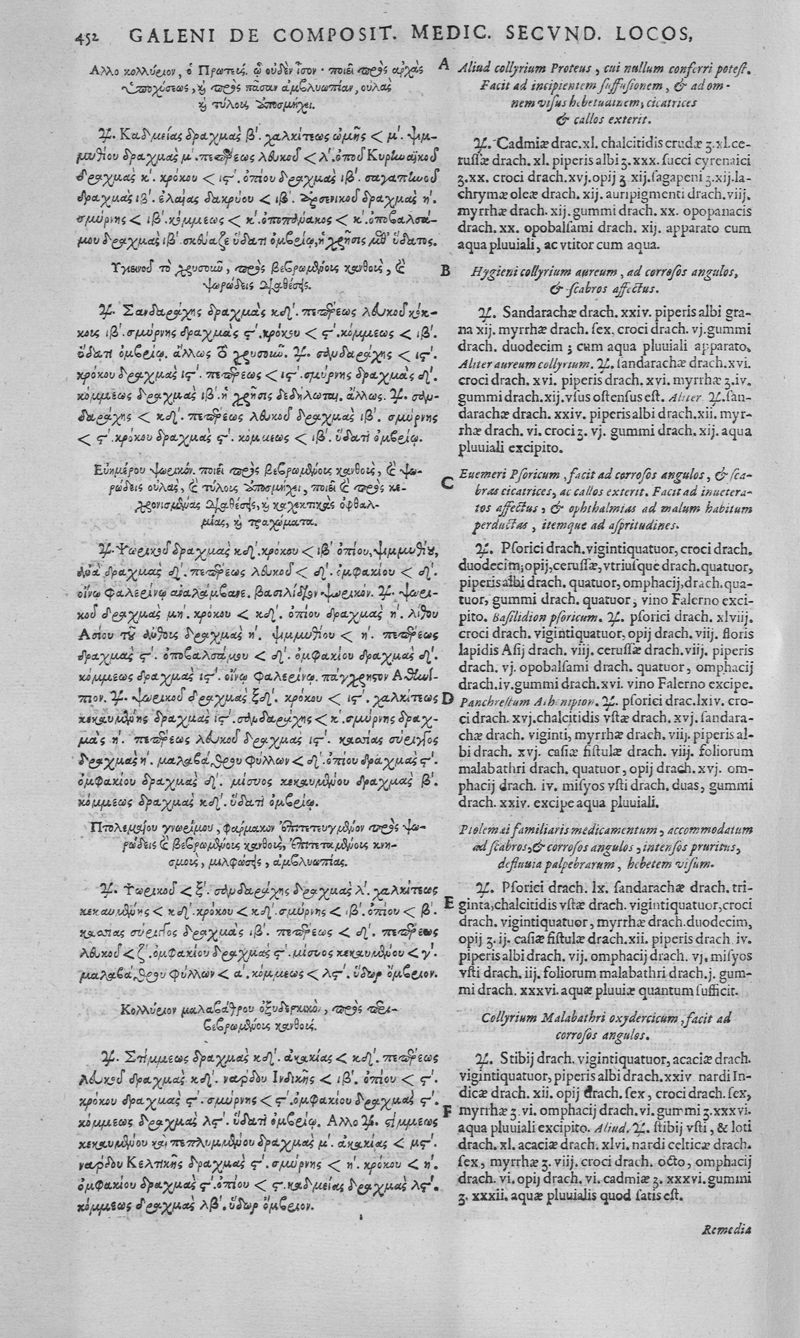 452 GALENI DE COMPOSIT. MEDIC. SECVND. LOCOS,
Αλλο κολλύριον, ὁ Πρωτεὺς, ᾧ οὐδὲν ἶσον· ποιεῖ πρὸς ἀρχὰς
ὑποχύσεως, καὶ πρὸς πᾶσαν ἀμβλυωπίαν, οὐλὰς
καὶ τύλοις ἀποσμήχει.
♃. Καδμείας δραχμὰς β΄. χαλκίτεως ὠμῆς < μ΄. ψιμ-
μυθίου δραχμὰς μ΄. πεπέρεως λευκοῦ < λ΄. ὀποῦ Κυρηναϊκοῦ
δραχμὰς κ΄. κρόκου < ις΄. ὀπίου δραχμὰς ιβ΄. σαγαπηνοῦ
δραχμὰς ιβ΄. ἐλαίας δακρύου < ιβ΄. ἀρσενικοῦ δραχμὰς η΄.
σμύρνης < ιβ΄. κόμμεως < κ΄. ὀποπάνακος < κ΄. ὀποβαλσά-
μου δραχμὰς ιβ΄. σκεύαζε ὕδατι ὀμβρίῳ, ἡ χρῆσις μεθ᾽ ὕδατος.
Υγιεινοῦ τὸ χρυσοῦν, πρὸς βεβρωμένους κανθοὺς, καὶ
ψωρώδεις διαθέσεις.
♃. Σανδαράχης δραχμὰς κδ΄. πεπέρεως λευκοῦ κόκ-
κοις ιβ΄. σμύρνης δραχμὰς ς΄. κρόκου < ς΄. κόμμεως < ιβ΄.
ὕδατι ὀμβρίῳ. ἄλλως τὸ χρυσοῦν. ♃. σανδαράχης < ις΄.
κρόκου δραχμὰς ις΄. πεπέρεως < ις΄. σμύρνης δραχμὰς δ΄.
κόμμεως δραχμὰς ιβ΄. ἡ χρῆσις δεδήλωται. ἄλλως. ♃. σαν-
δαράχης < κδ΄. πεπέρεως λευκοῦ δραχμὰς ιβ΄. σμύρνης
< ς΄. κρόκου δραχμὰς ς΄. κόμμεως < ιβ΄. ὕδατι ὀμβρίῳ.
Εὐημέρου ψωρικὸν. ποιεῖ πρὸς βεβρωμένους κανθοὺς, καὶ ψω-
ρώδεις οὐλὰς, καὶ τύλοις ἀποσμήχει, ποιεῖ καὶ πρὸς κε-
χρονισμένας διαθέσεις, καὶ καχεκτικὰς ὀφθαλ-
μίας, καὶ τραχώματα.
♃. Ψωρικοῦ δραχμὰς κδ΄. κρόκου < ιβ΄. ὀπίου, ψιμμυθίου,
ἀνὰ δραχμὰς δ΄. πεπέρεως λευκοῦ < δ΄. ὀμφακίου < δ΄.
οἴνῳ φαλερίνῳ ἀναλάμβανε. βασιλίδιον ψωρικόν. ♃. ψωρι-
κοῦ δραχμὰς μη΄. κρόκου < κδ΄. ὀπίου δραχμὰς η΄. λίθου
Ασίου τοῦ ἄνθους δραχμὰς η΄. ψιμμυθίου < η΄. πεπέρεως
δραχμὰς ς΄. ὀποβαλσάμου < δ΄. ὀμφακίου δραχμὰς δ΄.
κόμμεως δραχμὰς ις΄. οἴνῳ φαλερίνῳ.
πιον. ♃. ψωρικοῦ δραχμὰς ξδ΄. κρόκου < ις΄. χαλκίτεως
κεκαυμένης δραχμὰς ις΄. σανδαράχης < κ΄. σμύρνης δραχ-
μὰς η΄. πεπέρεως λευκοῦ δραχμὰς ις΄. κασίας σύριγγος
δραχμὰς η΄. μαλαβάθρου φύλλων < δ΄. ὀπίου δραχμὰς ς΄.
ὀμφακίου δραχμὰς δ΄. μίσυος κεκαυμένου δραχμὰς β΄.
κόμμεως δραχμὰς κδ΄. ὕδατι ὀμβρίῳ.
Πτολεμαίου γνωρίμου, φάρμακον ἐπιτετευγμένον πρὸς ψω-
ρώδεις καὶ βεβρωμένους κανθοὺς, ἐπιτεταμένους κνη-
σμοὺς, μιλφώσεις, ἀμβλυωπίας.
♃. Ψωρικοῦ < ξ΄. σανδαράχης δραχμὰς λ΄. χαλκίτεως
κεκαυμένης < κδ΄. κρόκου < κδ΄. σμύρνης < ιβ΄. ὀπίου < β΄.
κασίας σύριγγος δραχμὰς ιβ΄. πεπέρεως < δ΄. πεπέρεως
λευκοῦ < ζ΄. ὀμφακίου δραχμὰς ς΄. μίσυος κεκαυμένου < γ΄.
μαλαβάθρου φύλλων < α΄. κόμμεως < λς΄. ὕδωρ ὄμβριον.
Κολλύριον μαλαβάθρου ὀξυδερκικὸν, πρὸς περι-
βεβρωμένους κανθοὺς.
♃. Στίμμεως δραχμὰς κδ΄. ἀκακίας < κδ΄. πεπέρεως
λευκοῦ δραχμὰς κδ΄. νάρδου Ινδικῆς < ιβ΄. ὀπίου < ς΄.
κρόκου δραχμὰς ς΄. σμύρνης < ς΄. ὀμφακίου δραχμὰς ς΄.
κόμμεως δραχμὰς λς΄. ὕδατι ὀμβρίῳ. Αλλο ♃. στίμμεως
κεκαυμένου καὶ πεπλυμένου δραχμὰς μ΄. ἀκακίας < μς΄.
νάρδου Κελτικῆς δραχμὰς ς΄. σμύρνης < η΄. κρόκου < η΄.
ὀμφακίου δραχμὰς ς΄. ὀπίου < ς΄. καδμείας δραχμὰς λς΄.
κόμμεως δραχμὰς λβ΄. ὕδωρ ὄμβριον.
A Aliud collyrium Proteus, cui nullum conferri potest.
Facit ad incipientem suffusionem, & ad om-
nem visus hebetudinem, cicatrices
& callos exterit.
♃. Cadmiæ drac. xl. chalcitidis crudæ ʒ. xl. ce-
russæ drach. xl. piperis albi ʒ. xxx. succi cyrenaici
ʒ. xx. croci drach. xvj. opij ʒ xij. sagapeni ʒ. xij. la-
chrymæ oleæ drach. xij. auripigmenti drach. viij.
myrrhæ drach. xij. gummi drach. xx. opopanacis
drach. xx. opobalsami drach. xij. apparato cum
aqua pluuiali, ac vtitor cum aqua.
B Hygieni collyrium aureum, ad corrosos angulos,
& scabros affectus.
♃. Sandarachæ drach. xxiv. piperis albi gra-
na xij. myrrhæ drach. sex. croci drach. vj. gummi
drach. duodecim; cum aqua pluuiali apparato.
Aliter aureum collyrium. ♃. sandarachæ drach. xvi.
croci drach. xvi. piperis drach. xvi. myrrhæ ʒ. iv.
gummi drach. xij. vsus ostensus est. Aliter ♃. san-
darachæ drach. xxiv. piperis albi drach. xii. myr-
rhæ drach. vi. croci ʒ. vj. gummi drach. xij. aqua
pluuiali excipito.
C Euemeri Psoricum, facit ad corrosos angulos, & sca-
bras cicatrices, ac callos exterit. Facit ad inuetera-
tos affectus, & ophthalmias ad malum habitum
perductas, itemque ad aspritudines.
♃. Psorici drach. vigintiquatuor, croci drach.
duodecim, opij, cerussæ, vtriusque drach. quatuor,
piperis albi drach. quatuor, omphacij, drach. qua-
tuor, gummi drach. quatuor, vino Falerno exci-
pito. Basilidion psoricum. ♃. psorici drach. xlviij.
croci drach. vigintiquatuor, opij drach. viij. floris
lapidis Asij drach. viij. cerussæ drach. viij. piperis
drach. vj. opobalsami drach. quatuor, omphacij
drach. iv. gummi drach. xvi. vino Falerno excipe.
D Panchrestum ♃. psorici drac. lxiv. cro-
ci drach. xvj. chalcitidis vstæ drach. xvj. sandara-
chæ drach. viginti, myrrhæ drach. viij. piperis al-
bi drach. xvj. casiæ fistulæ drach. viij. foliorum
malabathri drach. quatuor, opij drach. xvj. om-
phacij drach. iv. misyos vsti drach. duas, gummi
drach. xxiv. excipe aqua pluuiali.
Ptolemæi familiaris medicamentum, accommodatum
ad scabros, & corrosos angulos, intensos pruritus,
defluuia palpebrarum, hebetem visum.
♃. Psorici drach. lx. sandarachæ drach. tri-
E ginta, chalcitidis vstæ drach. vigintiquatuor, croci
drach. vigintiquatuor, myrrhæ drach. duodecim,
opij ʒ. ij. casiæ fistulæ drach. xii. piperis drach. iv.
piperis albi drach. vii. omphacij drach. vj. misyos
vsti drach. iij. foliorum malabathri drach. j. gum-
mi drach. xxxvi. aquæ pluuiæ quantum sufficit.
Collyrium Malabathri oxydercicum, facit ad
corrosos angulos.
♃. Stibij drach. vigintiquatuor, acaciæ drach.
vigintiquatuor, piperis albi drach. xxiv. nardi In-
dicæ drach. xii. opij drach. sex, croci drach. sex,
F myrrhæ ʒ. vi. omphacij drach. vi. gummi ʒ. xxxvi.
aqua pluuiali excipito. Aliud. ♃. stibij vsti, & loti
drach. xl. acaciæ drach. xlvi. nardi celticæ drach.
sex, myrrhæ ʒ. viij. croci drach. octo, omphacij
drach. vi. opij drach. vi. cadmiæ ʒ. xxxvi. gummi
ʒ. xxxii. aquæ pluuialis quod satis est.
Remedia